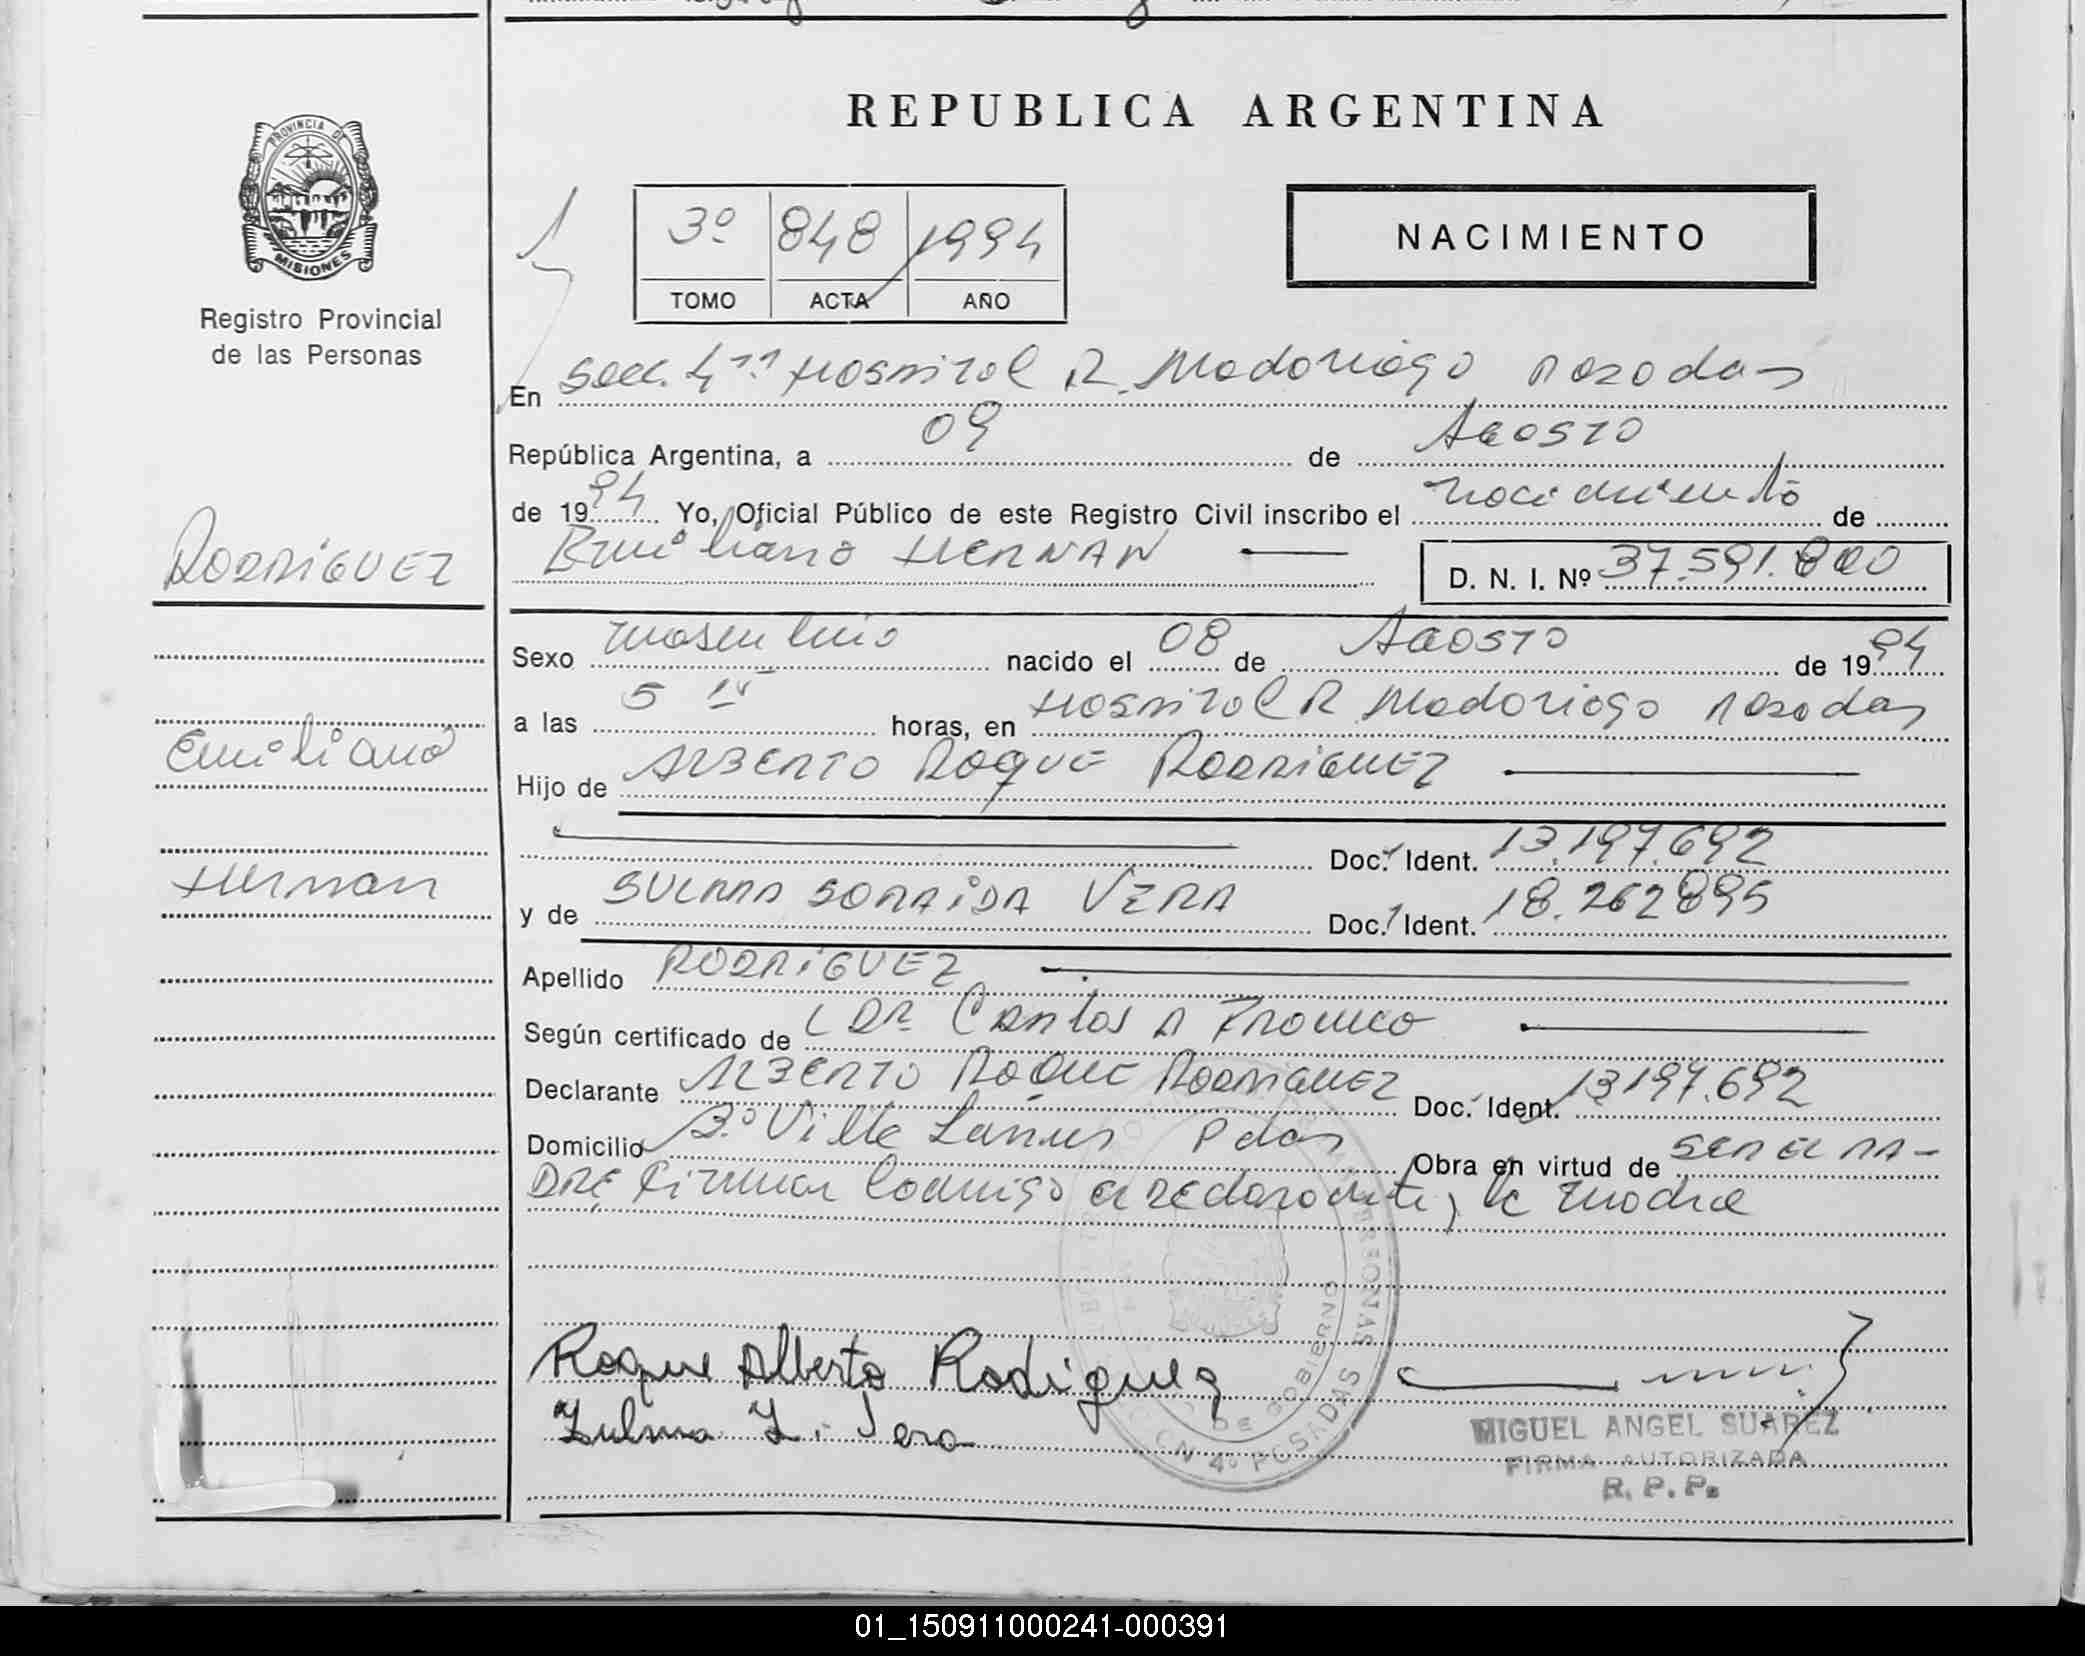 REPUBLICA ARGENTINA
PROVINCIA DE
MISIONES
Registro Provincial
de las Personas
3º 848 1994
TOMO ACTA AÑO
NACIMIENTO
En Secc. 4ª Hospital R. Madariaga Posadas
República Argentina, a 09 de Agosto
de 1994 Yo, Oficial Público de este Registro Civil inscribo el nacimiento de
RODRIGUEZ
Emiliano HERNAN
D. N. I. Nº 37.591.800
Sexo masculino nacido el 08 de Agosto de 1994
a las 5 15 horas, en Hospital R. Madariaga Posadas
Emiliano
Hijo de ALBERTO ROQUE RODRIGUEZ
Doc. Ident. 13.197.692
Hernan
y de VERA Doc. Ident. 18.262895
Apellido RODRIGUEZ
Según certificado de DR Carlos A Franco
Declarante ALBERTO ROQUE RODRIGUEZ Doc. Ident. 13197.692
Domicilio Bº Villa Lanus Pdas Obra en virtud de SER EL PA-
DRE Firman conmigo el declarante y la madre
Roque Alberto Rodiguez
Zulma Z. Vera
DE GOBIERNO
4º POSADAS
MIGUEL ANGEL SUAREZ
FIRMA AUTORIZADA
R. P. P.
01_150911000241-000391